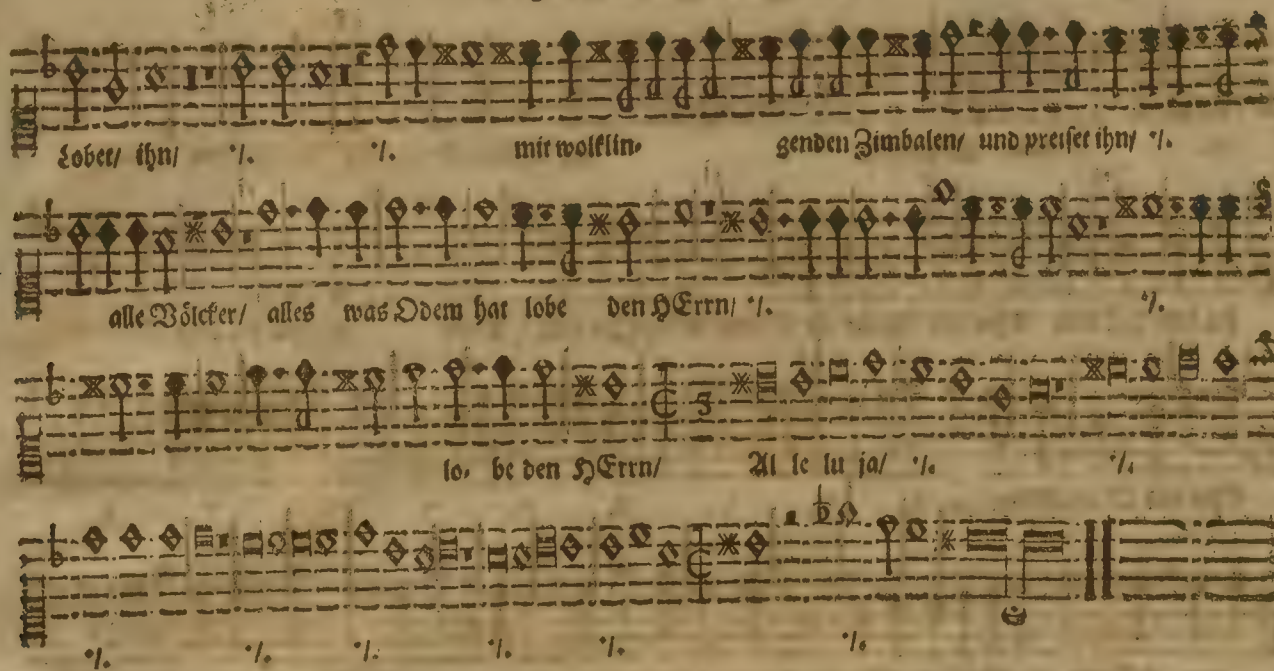 Lobet/ ihn/ ·/. ·/. mit wolklin- genden Zimbalen/ und preiset ihn/ ·/.
alle Völcker/ alles was Odem hat lobe den HErrn/ ·/. ·/.
lo- be den HErrn/ Al le lu ja/ ·/. ·/.
·/. ·/. ·/. ·/. ·/. ·/.